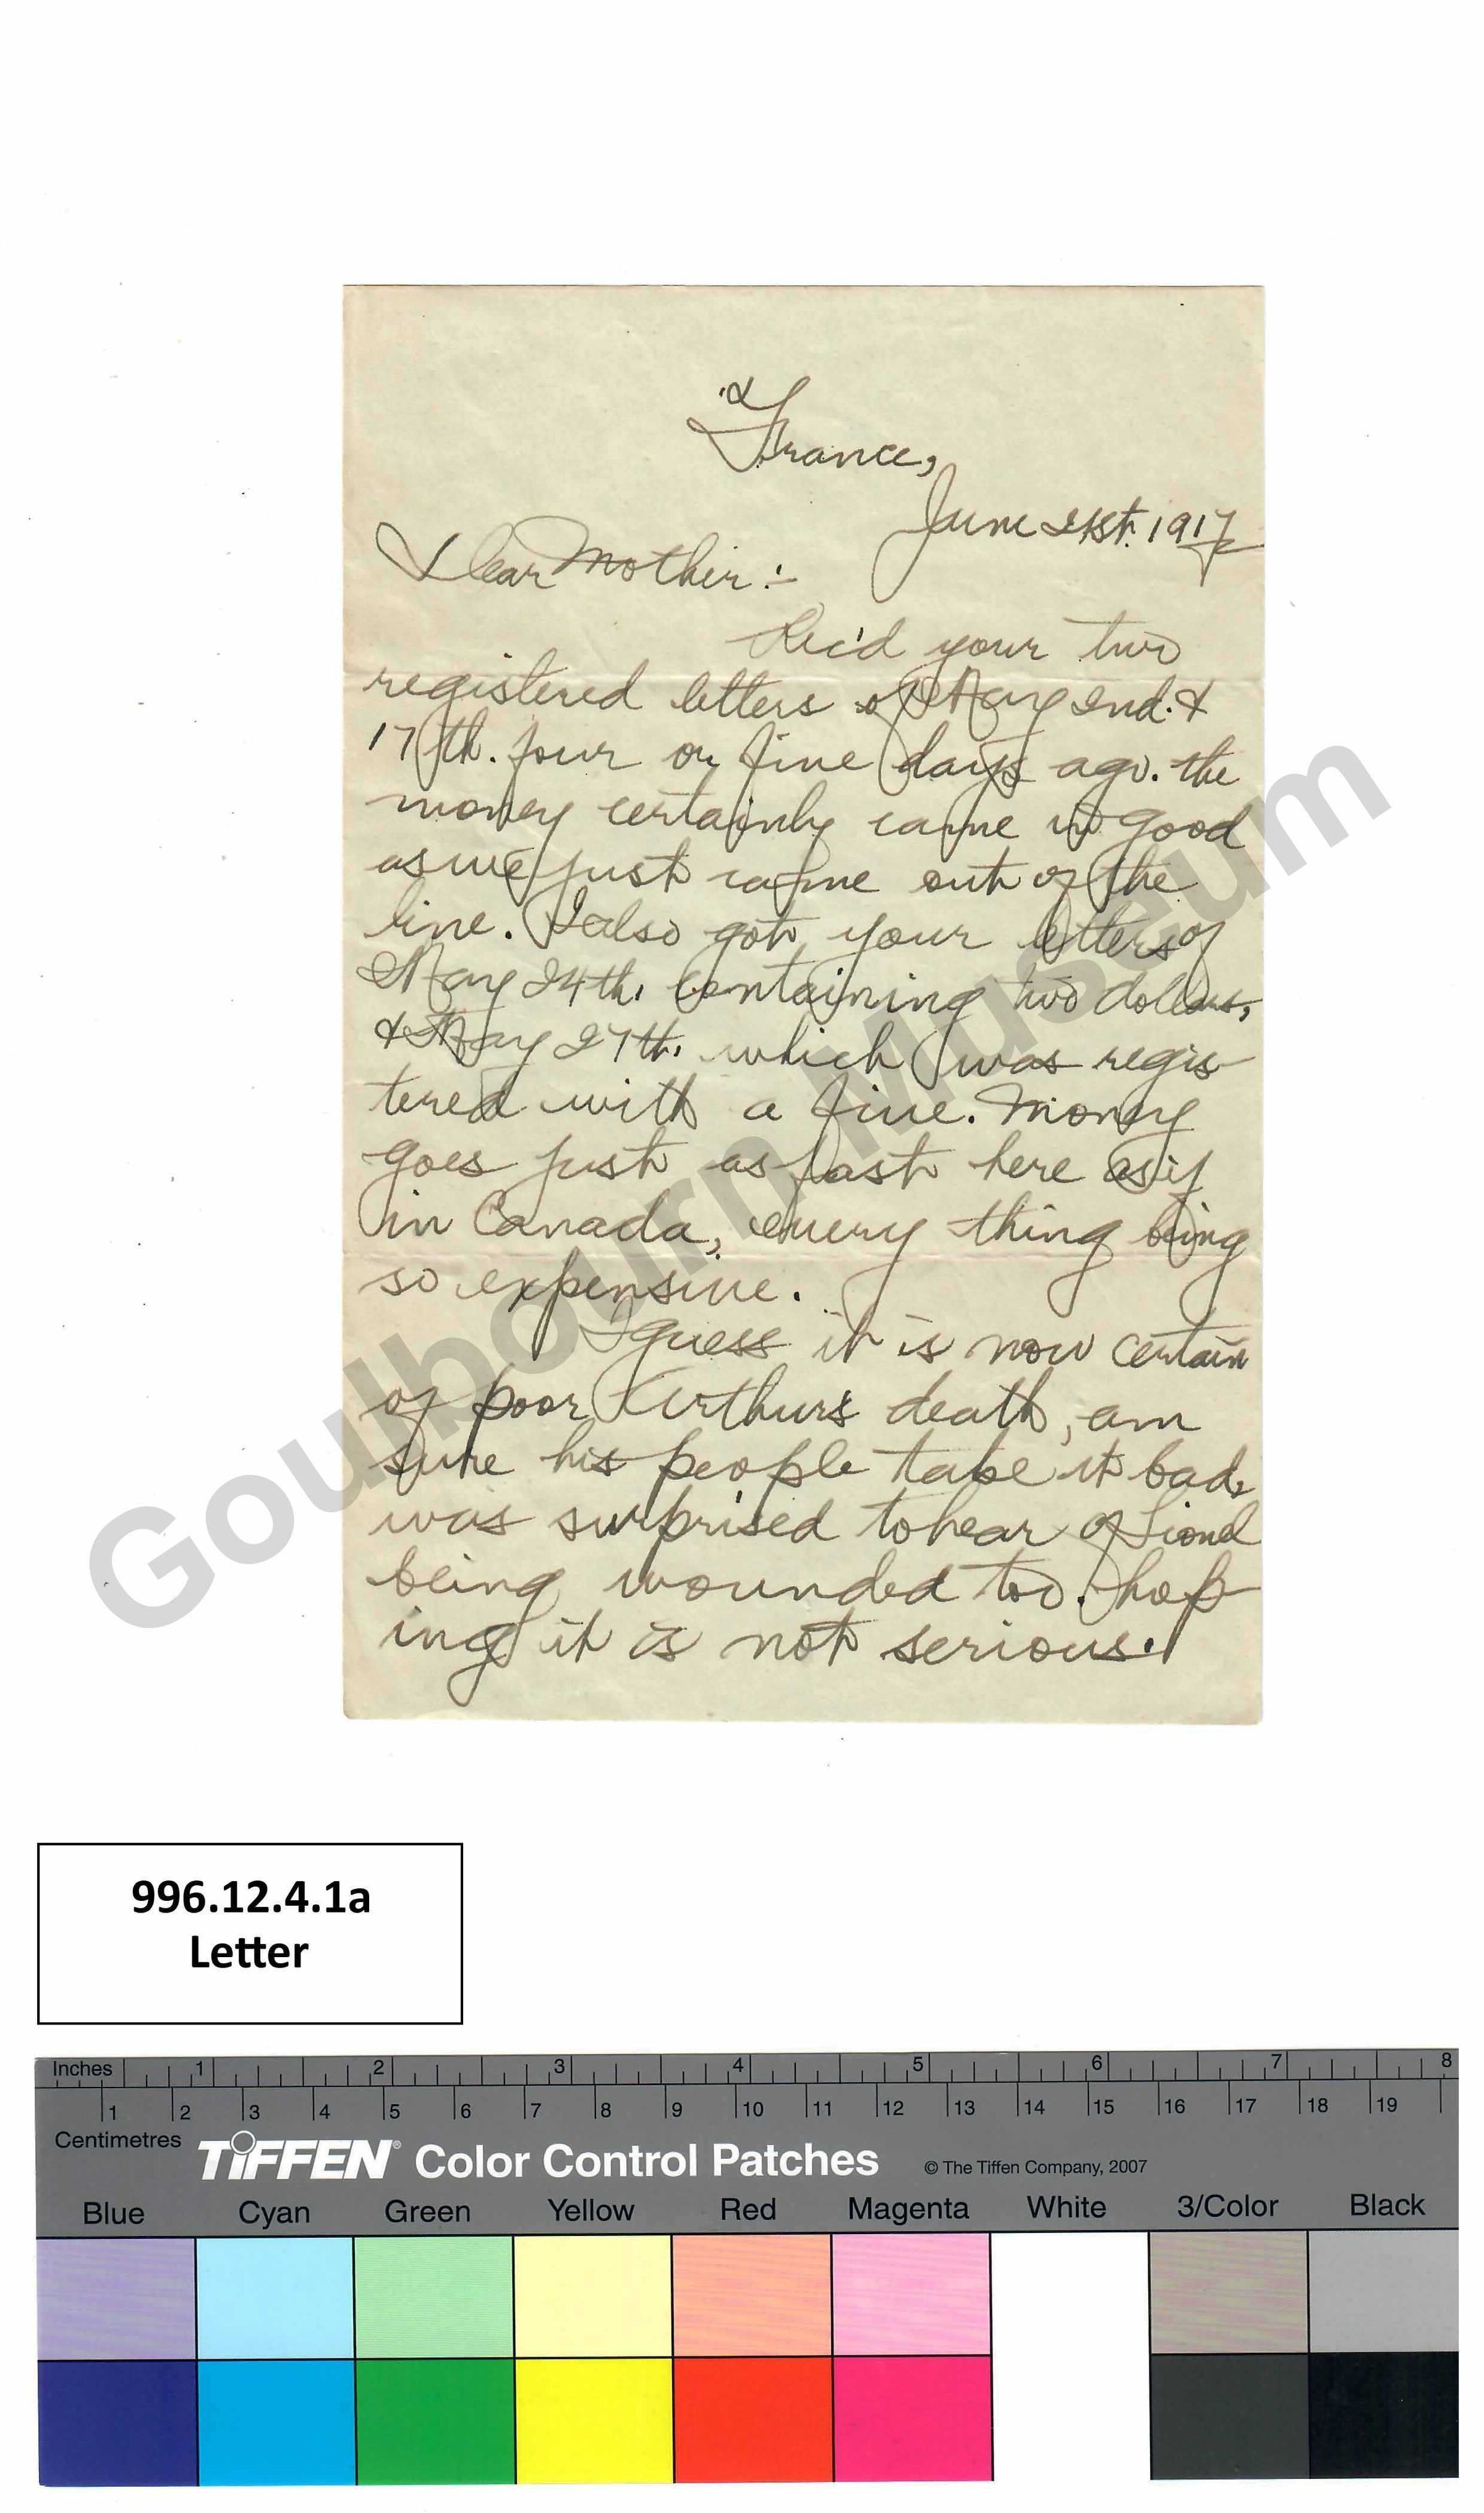 France,
June 21st. 1917
Dear Mother:-
Rec'd your two
registered letters of May 2nd. &
17th. four or five days ago. the
money certainly came in good
as we just came out of the
line. I also got your letters of
May 24th. containing two dollars,
& May 27th. which was regis-
tered with a five. Money
goes just as fast here as if
in Canada, every thing being
so expensive.
I guess it is now certain
of poor Arthurs death, am
sure his people take it bad,
was surprised to hear of Lionel
being wounded too. hop-
ing it is not serious.
Goulbourn Museum
996.12.4.1a
Letter
Inches 1 2 3 4 5 6 7 8
1 2 3 4 5 6 7 8 9 10 11 12 13 14 15 16 17 18 19
Centimetres
TIFFEN® Color Control Patches © The Tiffen Company, 2007
Blue Cyan Green Yellow Red Magenta White 3/Color Black